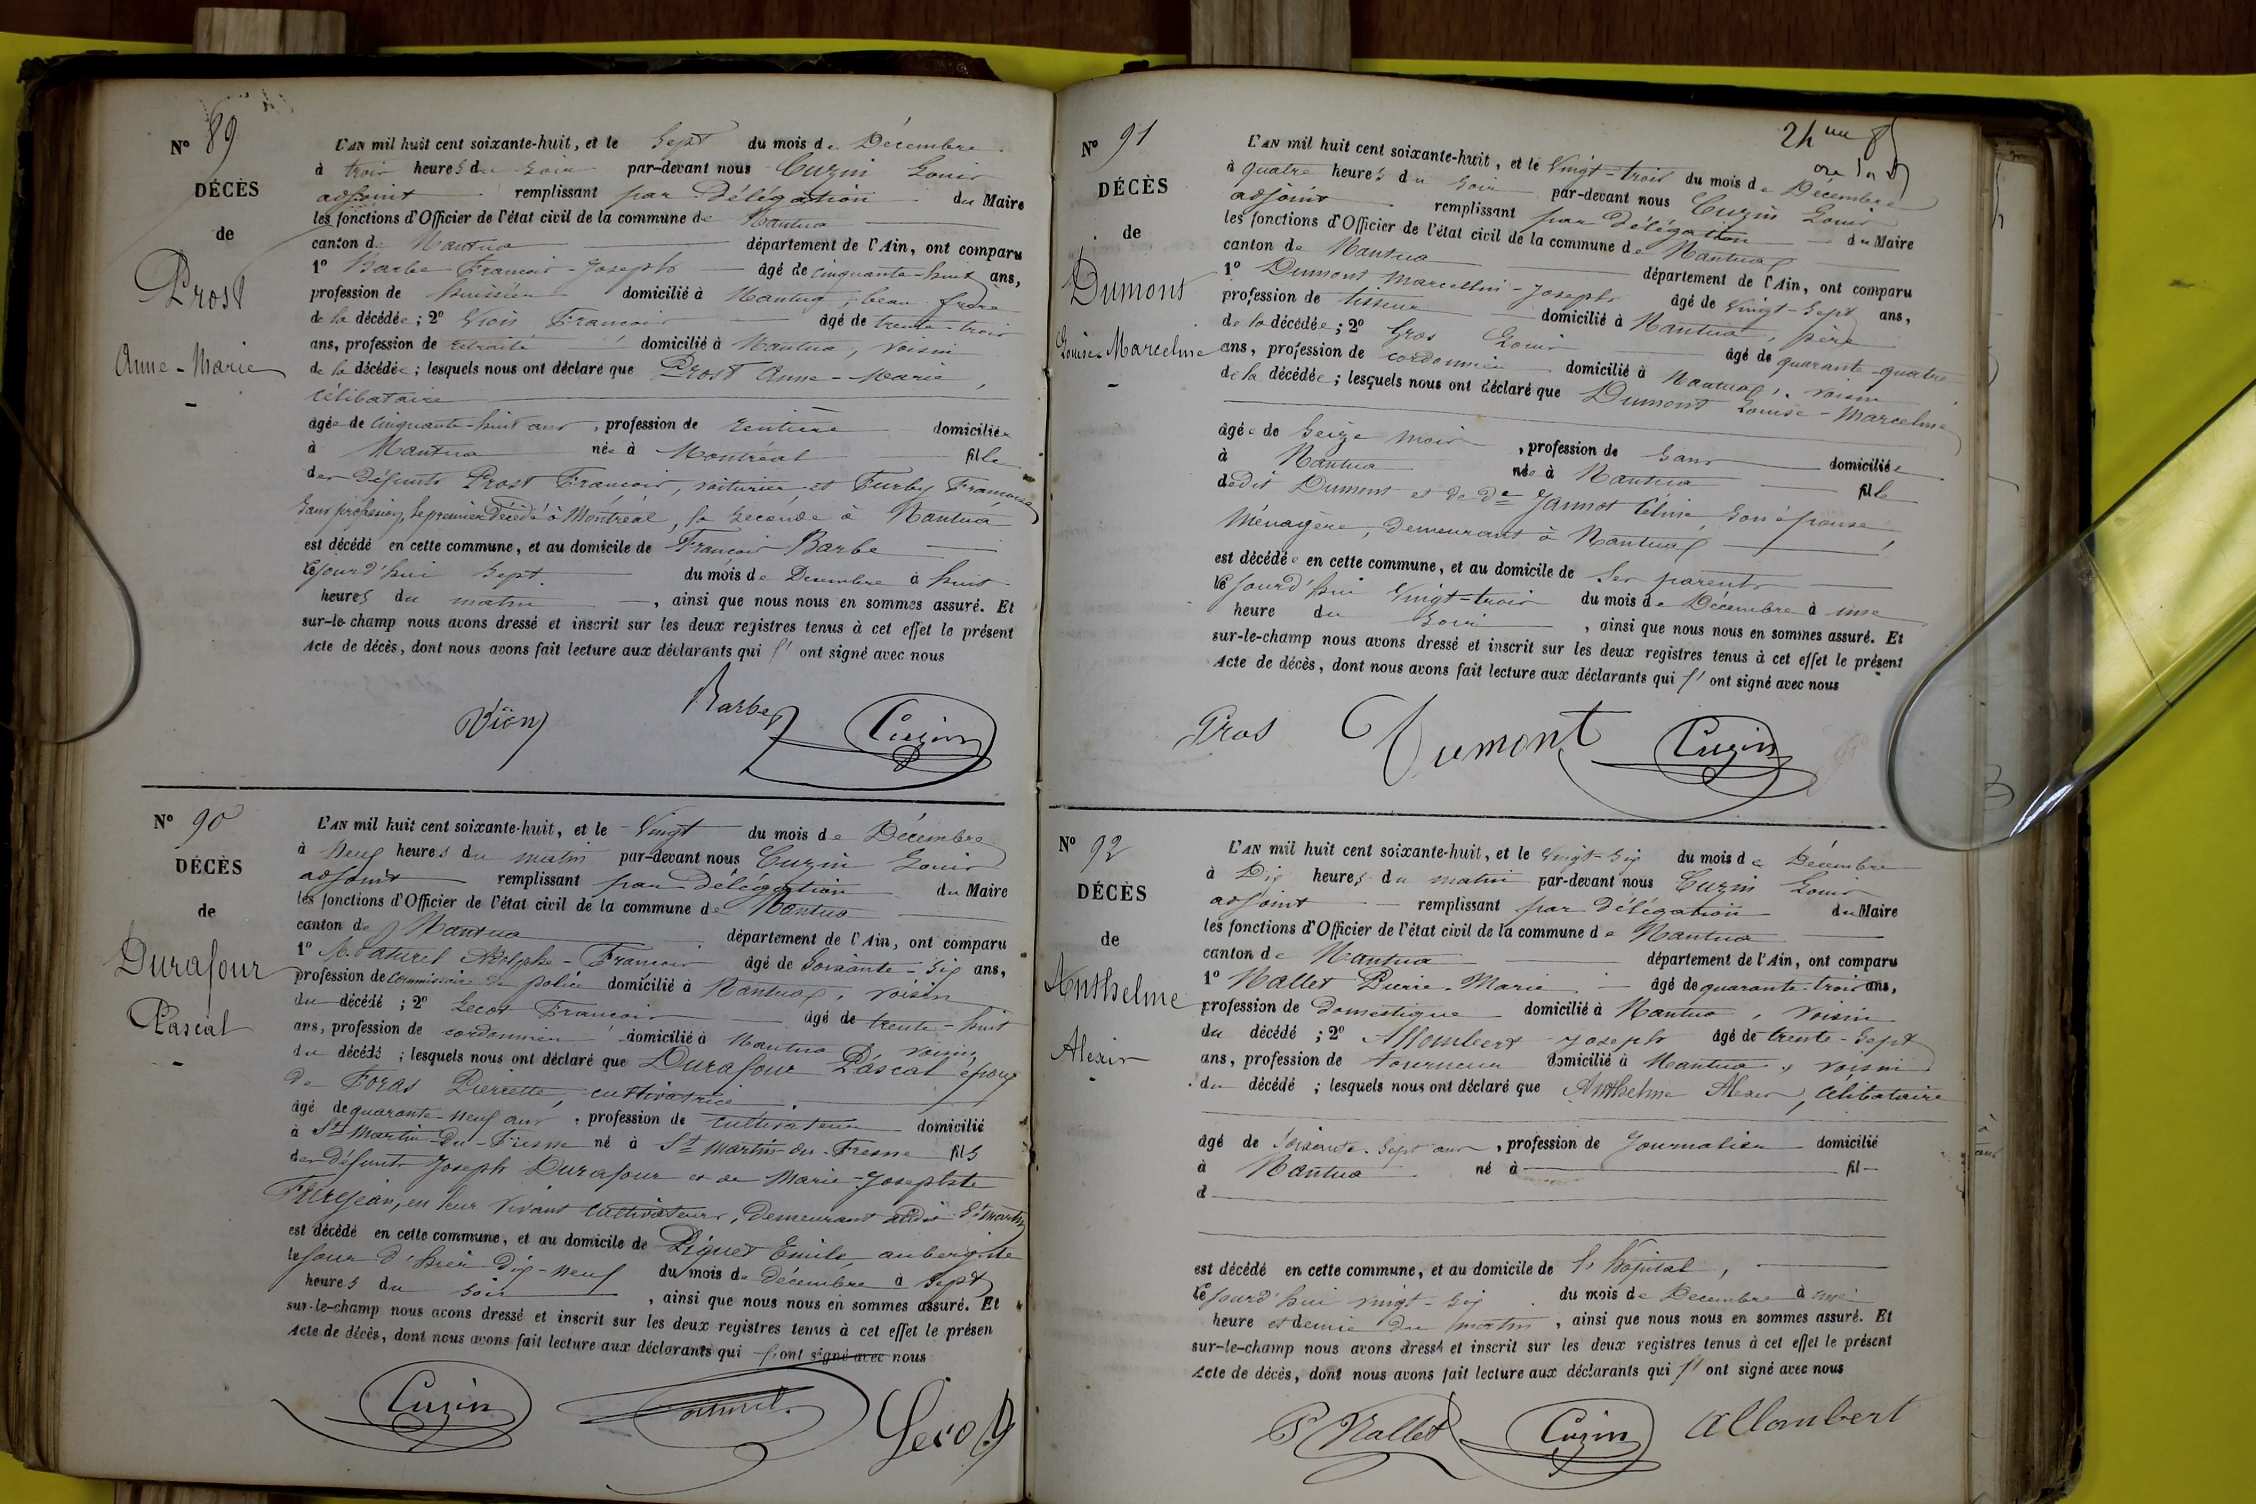 N° 89
DÉCÈS
de
Prost
Anne-Marie
L'AN mil huit cent soixante-huit, et le Sept du mois de Décembre
à trois heures du soir par-devant nous Cuzin Louis
adjoint remplissant par Délégation du Maire
les fonctions d'Officier de l'état civil de la commune de Nantua
canton de Nantua département de l'Ain, ont comparu
1° Barbe François-Joseph âgé de cinquante-huit ans,
profession de huissier domicilié à Nantua, beau-frère
de la décédée; 2° Vion François âgé de trente-trois
ans, profession de retraité domicilié à Nantua, voisin
de la décédée; lesquels nous ont déclaré que Prost Anne-Marie,
célibataire
âgée de cinquante-huit ans, profession de rentière domiciliée
à Nantua née à Montréal fille
des défunts Prost François, voiturier et Furby Françoise
sans profession, le premier décédé à Montréal, la seconde à Nantua
est décédé en cette commune, et au domicile de François Barbe
le jourd'hui sept du mois de Décembre à huit
heures du matin, ainsi que nous nous en sommes assuré. Et
sur-le-champ nous avons dressé et inscrit sur les deux registres tenus à cet effet le présent
Acte de décès, dont nous avons fait lecture aux déclarants qui l' ont signé avec nous
Viön Barbe Cuzin
N° 90
DÉCÈS
de
Durafour
Pascal
L'AN mil huit cent soixante-huit, et le Vingt du mois de Décembre
à neuf heures du matin par-devant nous Cuzin Louis
adjoint remplissant par Délégation du Maire
les fonctions d'Officier de l'état civil de la commune de Nantua
canton de Nantua département de l'Ain, ont comparu
1° Adolphe-François âgé de soixante-six ans,
profession de commissaire de police domicilié à Nantua, voisin
du décédé; 2° Lecot François âgé de trente-huit
ans, profession de cordonnier domicilié à Nantua voisin
du décédé; lesquels nous ont déclaré que Durafour Pascal époux
de Foras Pierrette, cultivatrice
âgé de quarante-neuf ans, profession de cultivateur domicilié
à St Martin-du-Frêsne né à St Martin-du-Fresne fils
des défunts Joseph Durafour et de Marie-Josephte
en leur vivant cultivateurs, demeurant audit St Martin
est décédé en cette commune, et au domicile de Piquet Emile aubergiste
le jour d'hier dix-neuf du mois de décembre à sept
heures du soir, ainsi que nous nous en sommes assuré. Et
sur-le-champ nous avons dressé et inscrit sur les deux registres tenus à cet effet le présen
Acte de décès, dont nous avons fait lecture aux déclarants qui l'ont signé avec nous
Cuzin Lecot
N° 91
DÉCÈS
de
Dumont
Louise-Marceline
24
L'AN mil huit cent soixante-huit, et le Vingt-trois du mois de Décembre
à quatre heures du soir par-devant nous Cuzin Louis
adjoint remplissant par délégation du Maire
les fonctions d'Officier de l'état civil de la commune de Nantua
canton de Nantua département de l'Ain, ont comparu
1° Dumont Marcellin-Joseph âgé de vingt-sept ans,
profession de tisseur domicilié à Nantua, père
de la décédée; 2° Gros Louis âgé de quarante-quatre
ans, profession de cordonnier domicilié à Nantua, voisin
de la décédée; lesquels nous ont déclaré que Dumont Louise-Marceline
âgée de Seize mois, profession de sans domiciliée
à Nantua née à Nantua fille
dudit Dumont et de De Jannot Céline, son épouse,
Ménagère, demeurant à Nantua
est décédée en cette commune, et au domicile de ses parents
le jourd'hui Vingt-trois du mois de Décembre à une
heure du soir, ainsi que nous nous en sommes assuré. Et
sur-le-champ nous avons dressé et inscrit sur les deux registres tenus à cet effet le présent
Acte de décès, dont nous avons fait lecture aux déclarants qui l' ont signé avec nous
Gros Dumont Cuzin
N° 92
DÉCÈS
de
Anthelme
Alexis
L'AN mil huit cent soixante-huit, et le vingt-six du mois de Décembre
à Dix heures du matin par-devant nous Cuzin Louis
adjoint remplissant par délégation du Maire
les fonctions d'Officier de l'état civil de la commune de Nantua
canton de Nantua département de l'Ain, ont comparu
1° Nallet Pierre-Marie âgé de quarante-trois ans,
profession de domestique domicilié à Nantua, voisin
du décédé; 2° Allombert Joseph âgé de trente-sept
ans, profession de tourneur domicilié à Nantua, voisin
du décédé; lesquels nous ont déclaré que Anthelme Alexis, célibataire
âgé de soixante-sept ans, profession de Journalier domicilié
à Nantua né à fil
d
est décédé en cette commune, et au domicile de l'hôpital,
le jourd'hui vingt-six du mois de Décembre à une
heure et demie du matin, ainsi que nous nous en sommes assuré. Et
sur-le-champ nous avons dressé et inscrit sur les deux registres tenus à cet effet le présent
Acte de décès, dont nous avons fait lecture aux déclarants qui l' ont signé avec nous
P Nallet Cuzin Allombert